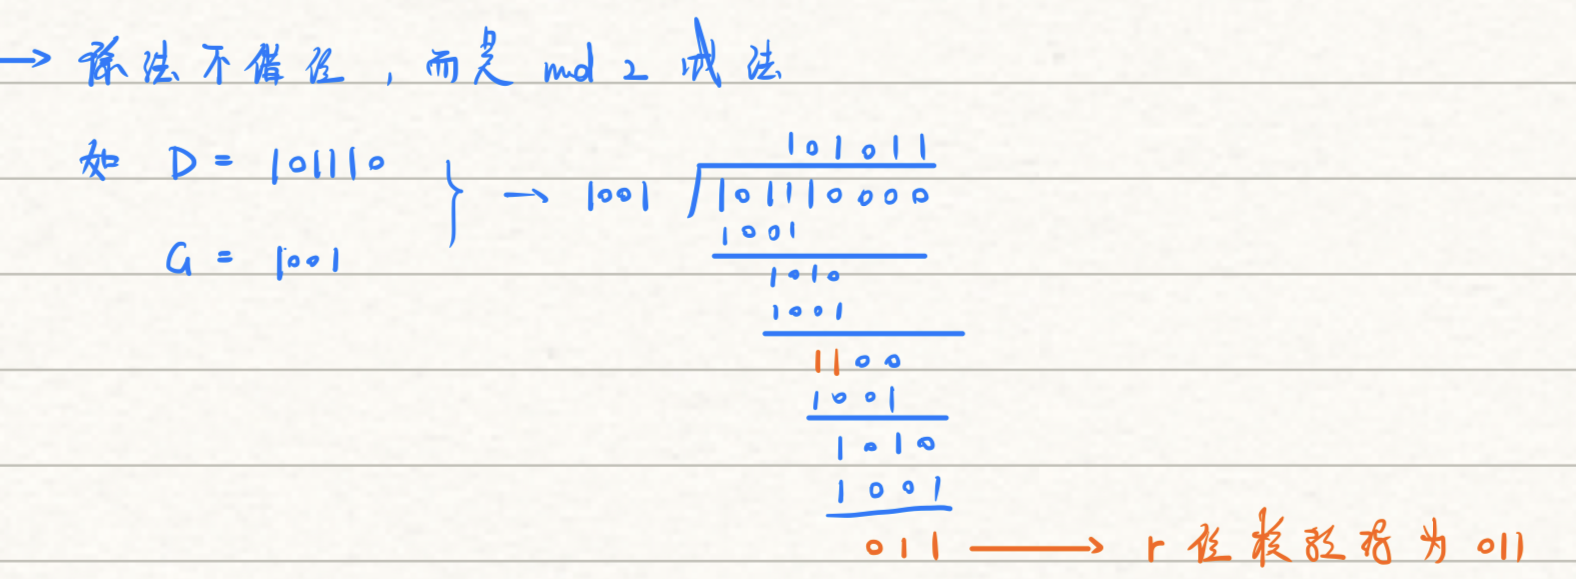 → 除法不借位，而是 mod 2 减法
如 D = 101110
G = 1001
} →
101011
1001 √101110000
1001
1010
1001
1100
1001
1010
1001
011 → r 位校验码为 011